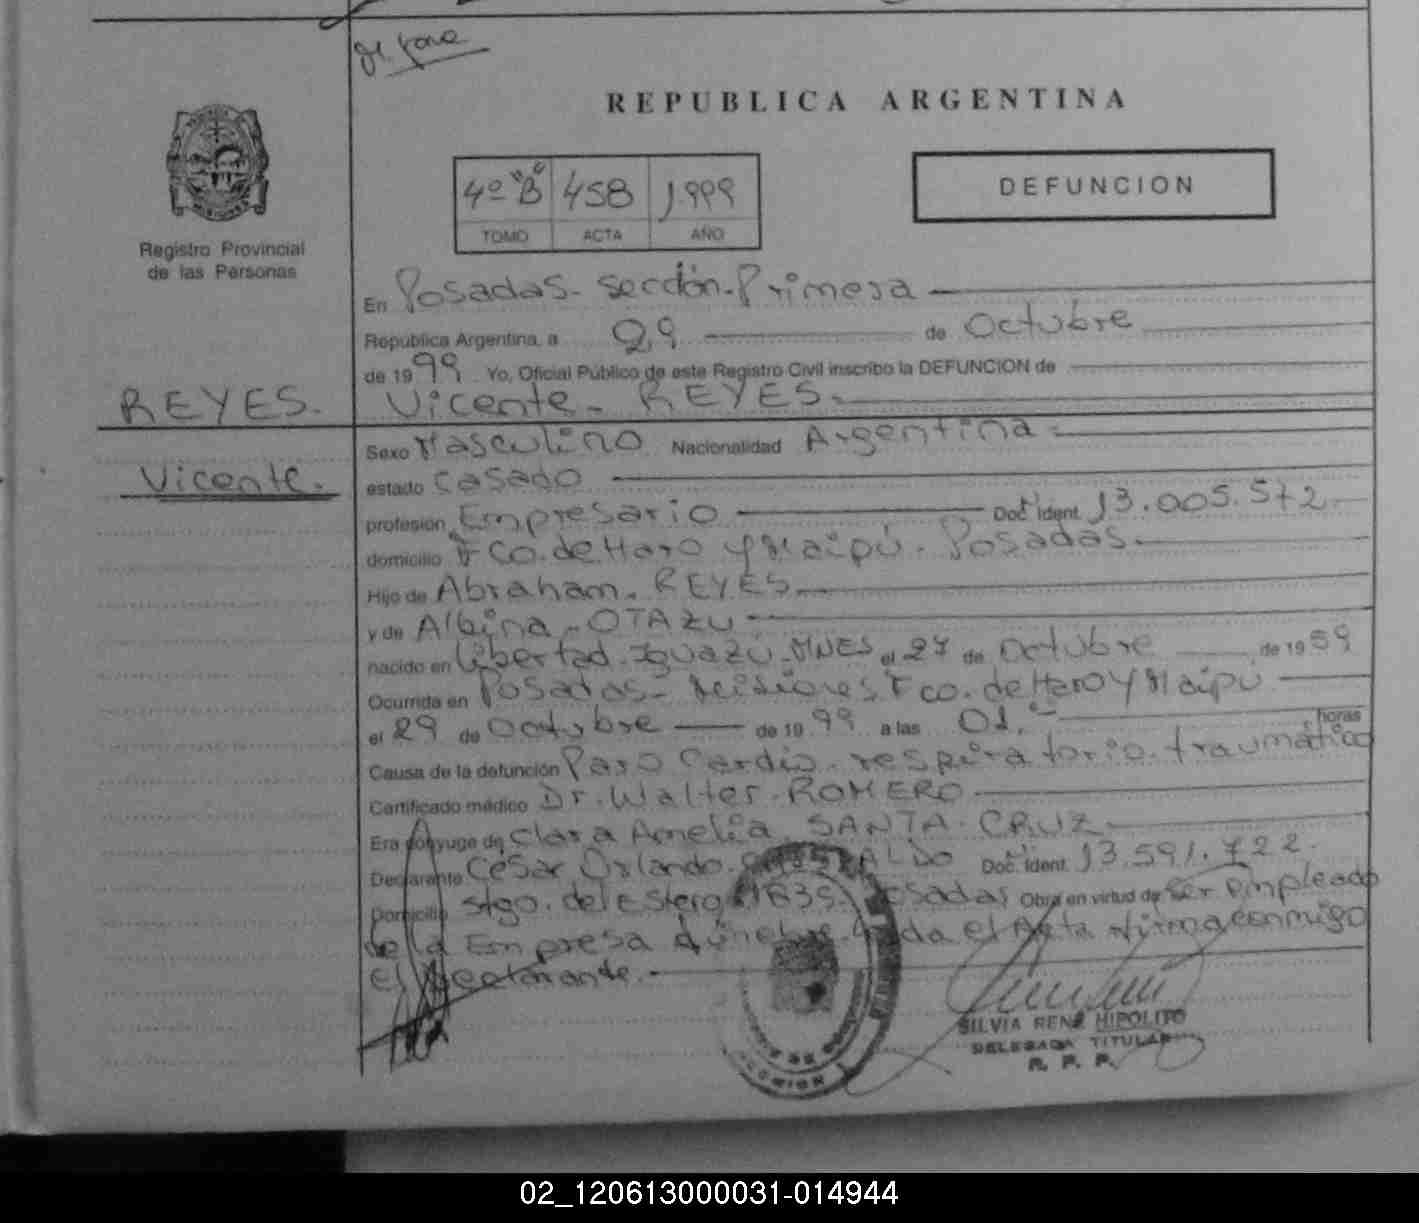 REPUBLICA ARGENTINA
4º "B" 458 1.999
TOMO ACTA AÑO
DEFUNCION
Registro Provincial
de las Personas
En Posadas - Sección - Primera
Republica Argentina, a 29 de Octubre
de 1999 Yo, Oficial Público de este Registro Civil inscribo la DEFUNCION de
REYES. Vicente - REYES.
Sexo Masculino Nacionalidad Argentina
Vicente.
estado Casado
profesión Empresario Doc. Ident. 13.005.572.
domicilio Fco. de Haro y Maipú. Posadas
Hijo de Abraham - REYES
y de Albina - OTAZU
nacido en Libertad - Iguazú - MNES el 27 de Octubre de 1959
Ocurrida en Posadas - Misiones Fco. de Haro y Maipú
el 29 de Octubre de 1999 a las 01. horas
Causa de la defunción Paro Cardio - respiratorio - traumático
Certificado médico Dr. Walter - ROMERO
Era conyuge de Clara Amelia. SANTA CRUZ
Declarante César Orlando. Doc. Ident. 13.591.722.
Domicilio Stgo. del Estero 1835. Posadas Obra en virtud de ser empleado
de la Empresa fúnebre. Leida el Acta firma conmigo
el declarante.
SILVIA RENE HIPOLITO
DELEGADA TITULAR
R. P. P.
02_120613000031-014944